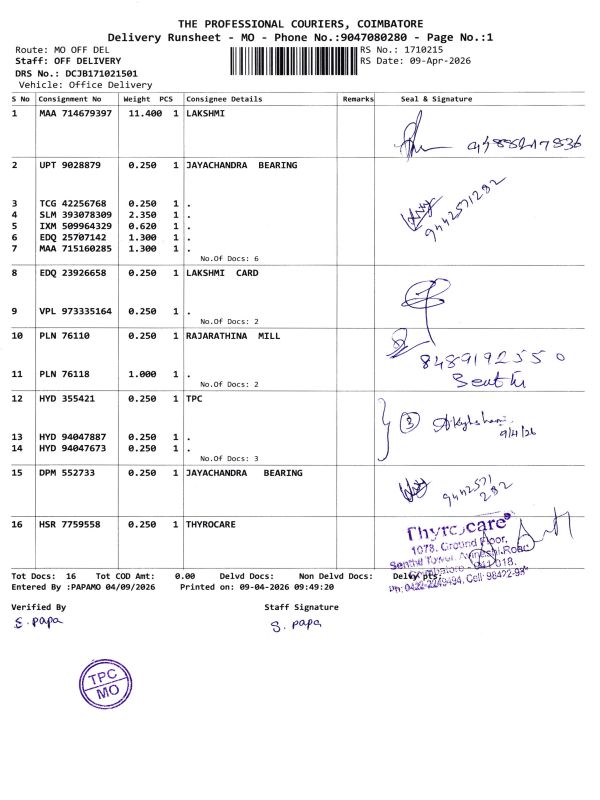 THE PROFESSIONAL COURIERS, COIMBATORE
Delivery Runsheet - MO - Phone No.:9047080280 - Page No.:1
Route: MO OFF DEL RS No.: 1710215
Staff: OFF DELIVERY RS Date: 09-Apr-2026
DRS No.: DCJB171021501
Vehicle: Office Delivery
S No Consignment No Weight PCS Consignee Details Remarks Seal & Signature
1 MAA 714679397 11.400 1 LAKSHMI
2 UPT 9028879 0.250 1 JAYACHANDRA BEARING
9442571282
3 TCG 42256768 0.250 1 .
4 SLM 393078309 2.350 1 .
5 IXM 509964329 0.620 1 .
6 EDQ 25707142 1.300 1 .
7 MAA 715160285 1.300 1 .
No.Of Docs: 6
8 EDQ 23926658 0.250 1 LAKSHMI CARD
9 VPL 973335164 0.250 1 .
No.Of Docs: 2
10 PLN 76110 0.250 1 RAJARATHINA MILL
8489192550
11 PLN 76118 1.000 1 .
No.Of Docs: 2
12 HYD 355421 0.250 1 TPC
3
9/4/26
13 HYD 94047887 0.250 1 .
14 HYD 94047673 0.250 1 .
No.Of Docs: 3
15 DPM 552733 0.250 1 JAYACHANDRA BEARING
9442571
282
16 HSR 7759558 0.250 1 THYROCARE
Thyrocare
1078, Ground Floor,
Senthil Tower, Avinashi Road
Coimbatore - 641 018.
Ph: 0422-2249494, Cell: 98422-98
Tot Docs: 16 Tot COD Amt: 0.00 Delvd Docs: Non Delvd Docs: Delby pts:
Entered By :PAPAMO 04/09/2026 Printed on: 09-04-2026 09:49:20
Verified By Staff Signature
S. papa S. papa
TPC
MO